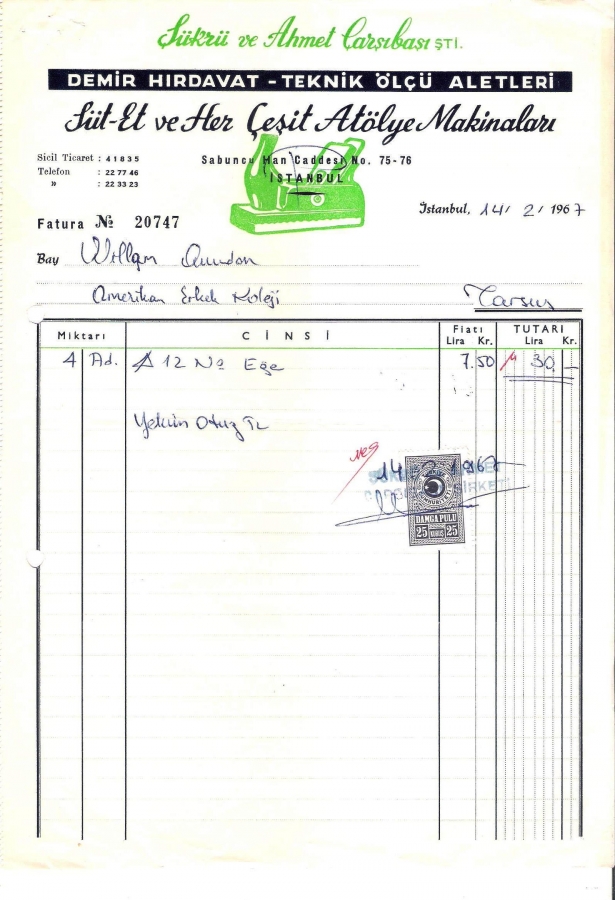 Şükrü ve Ahmet Çarşıbaşı ŞTİ.
DEMİR HIRDAVAT - TEKNİK ÖLÇÜ ALETLERİ
Süt-Et ve Her Çeşit Atölye Makinaları
Sicil Ticaret : 41835
Telefon : 22 77 46
» : 22 33 23
Sabuncu Han Caddesi No. 75-76
İSTANBUL
Fatura № 20747
İstanbul, 14 / 2 / 1967
Bay
Amerikan Erkek Koleji
Tarsus
Miktarı CİNSİ Fiatı Lira Kr. TUTARI Lira Kr.
4 Ad. 12 No Eğe 7.50 30. —
Yekün Otuz TL
14 2 1967
ŞİRKETİ
DAMGA PULU
25 KURUŞ 25